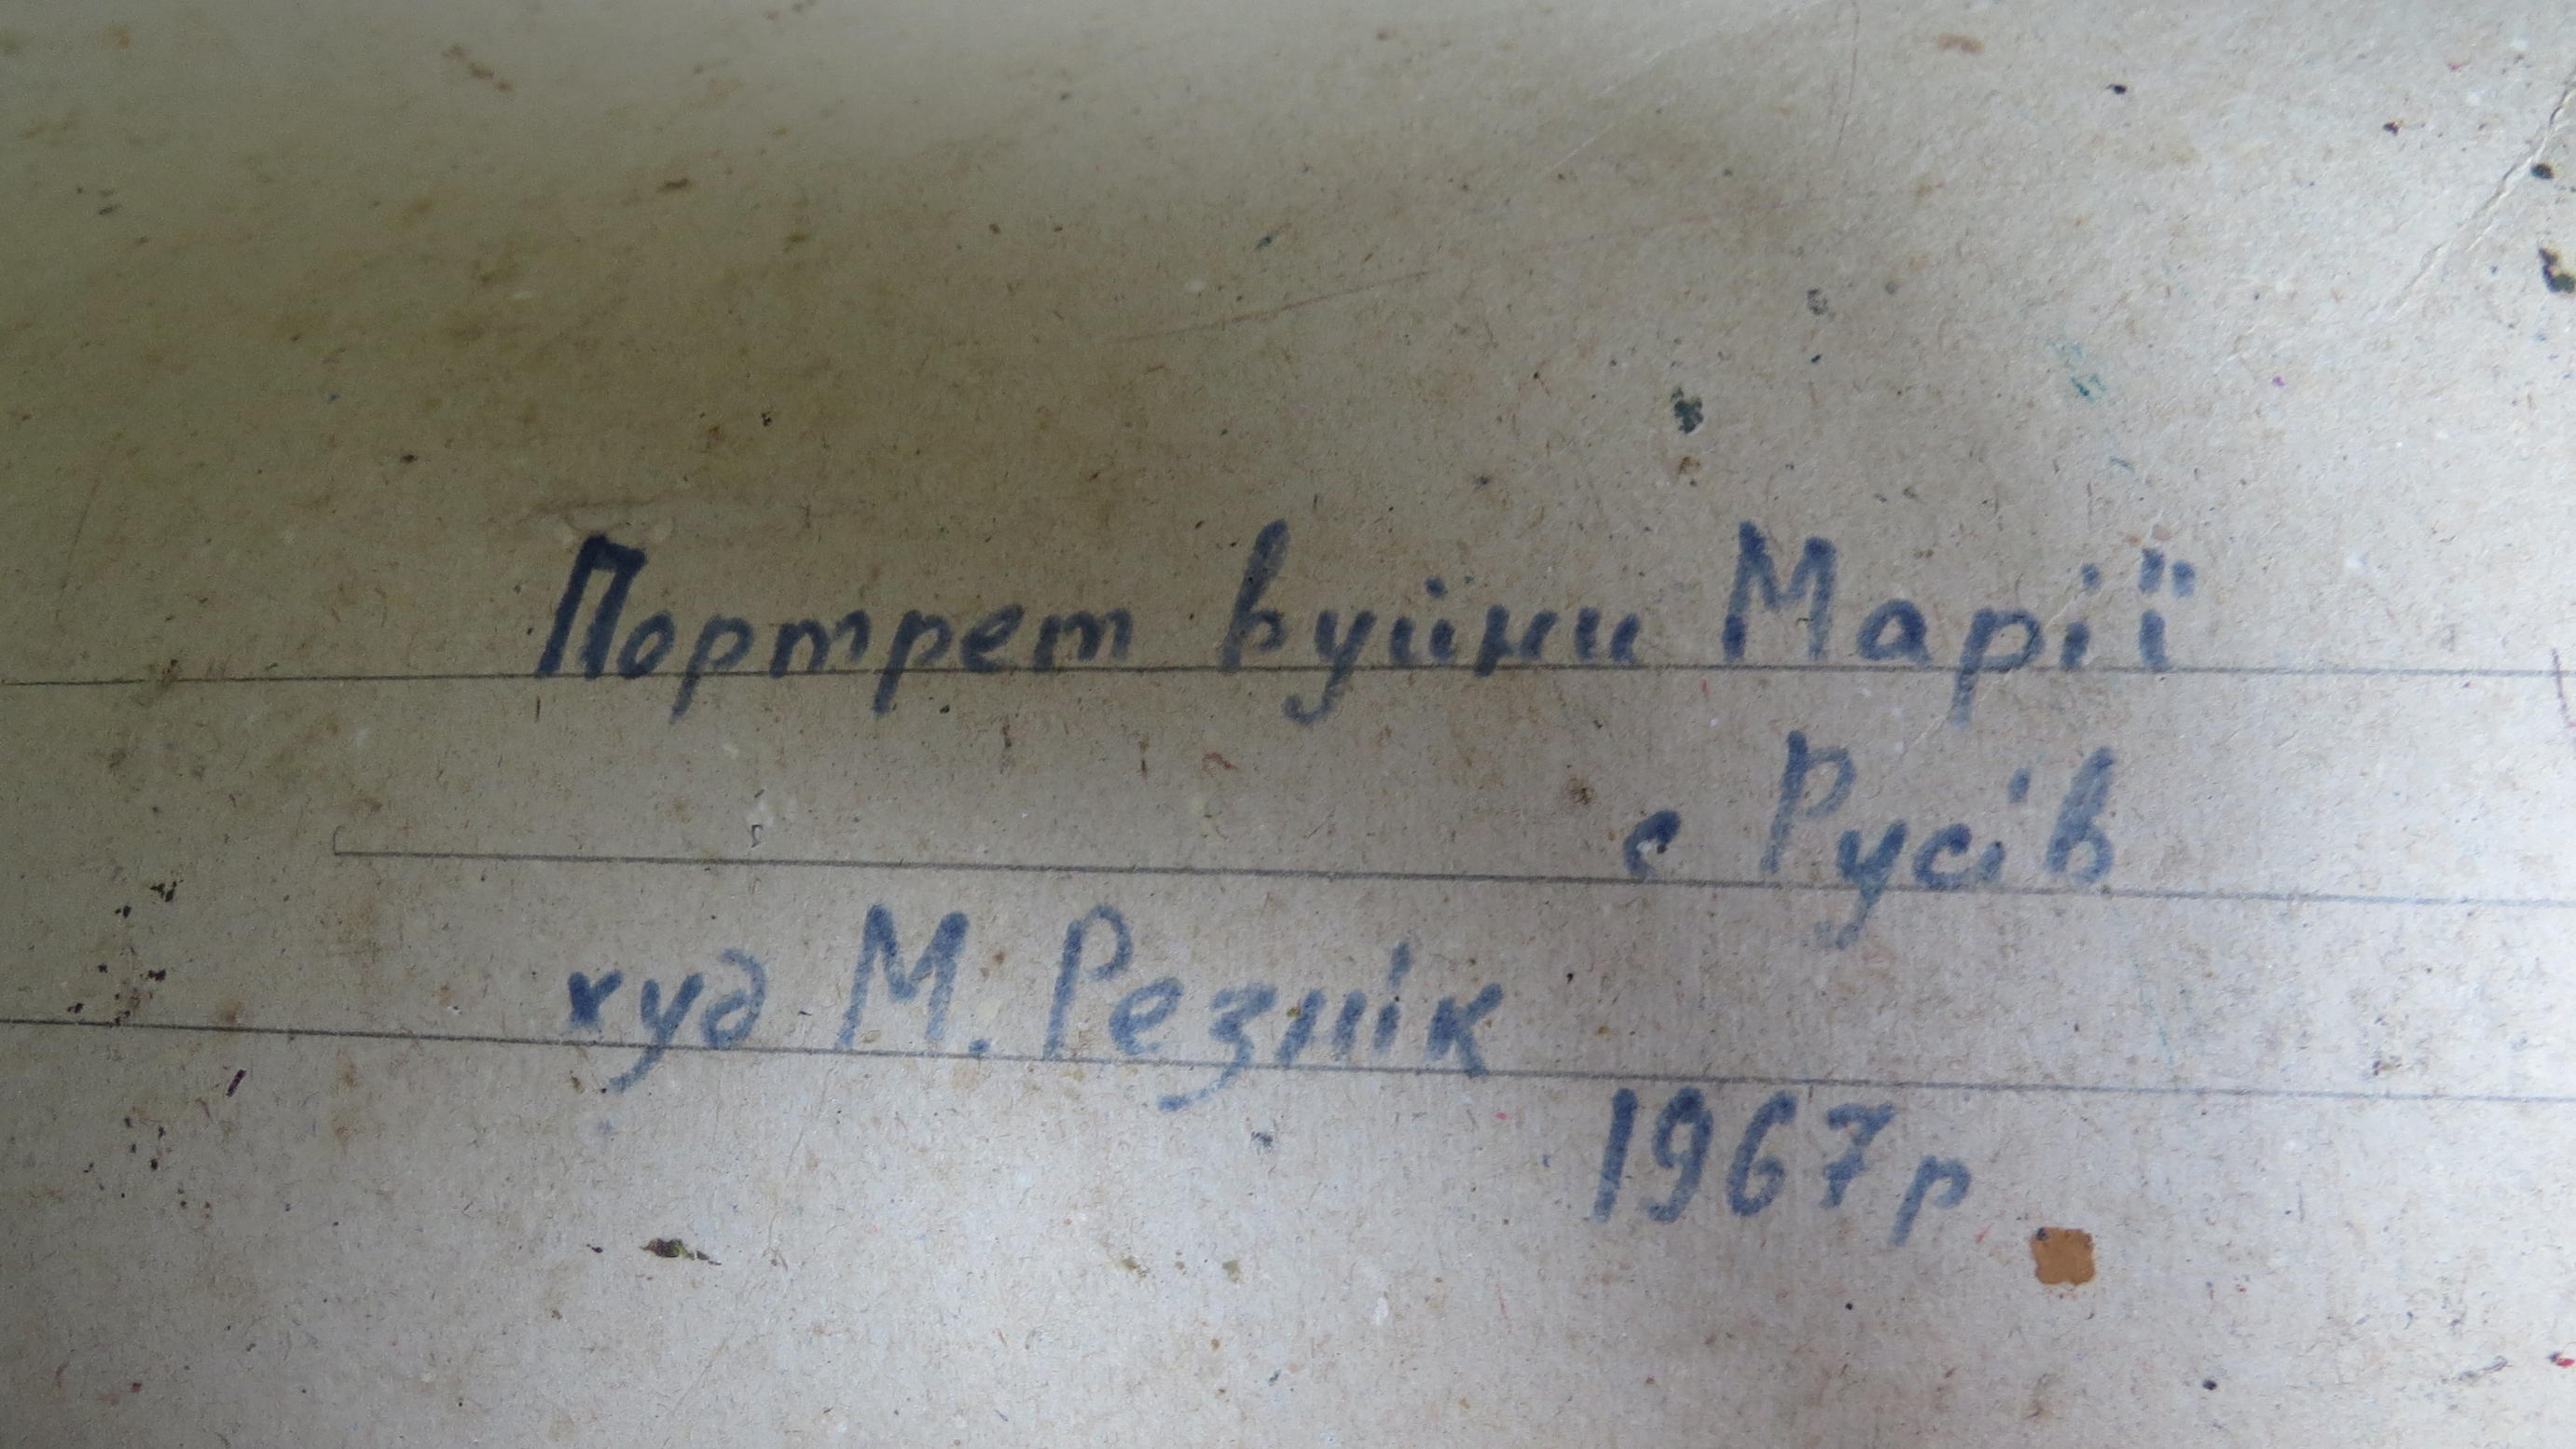 Портрет вуйни Марії
с Русів
худ М. Резнік
1967р